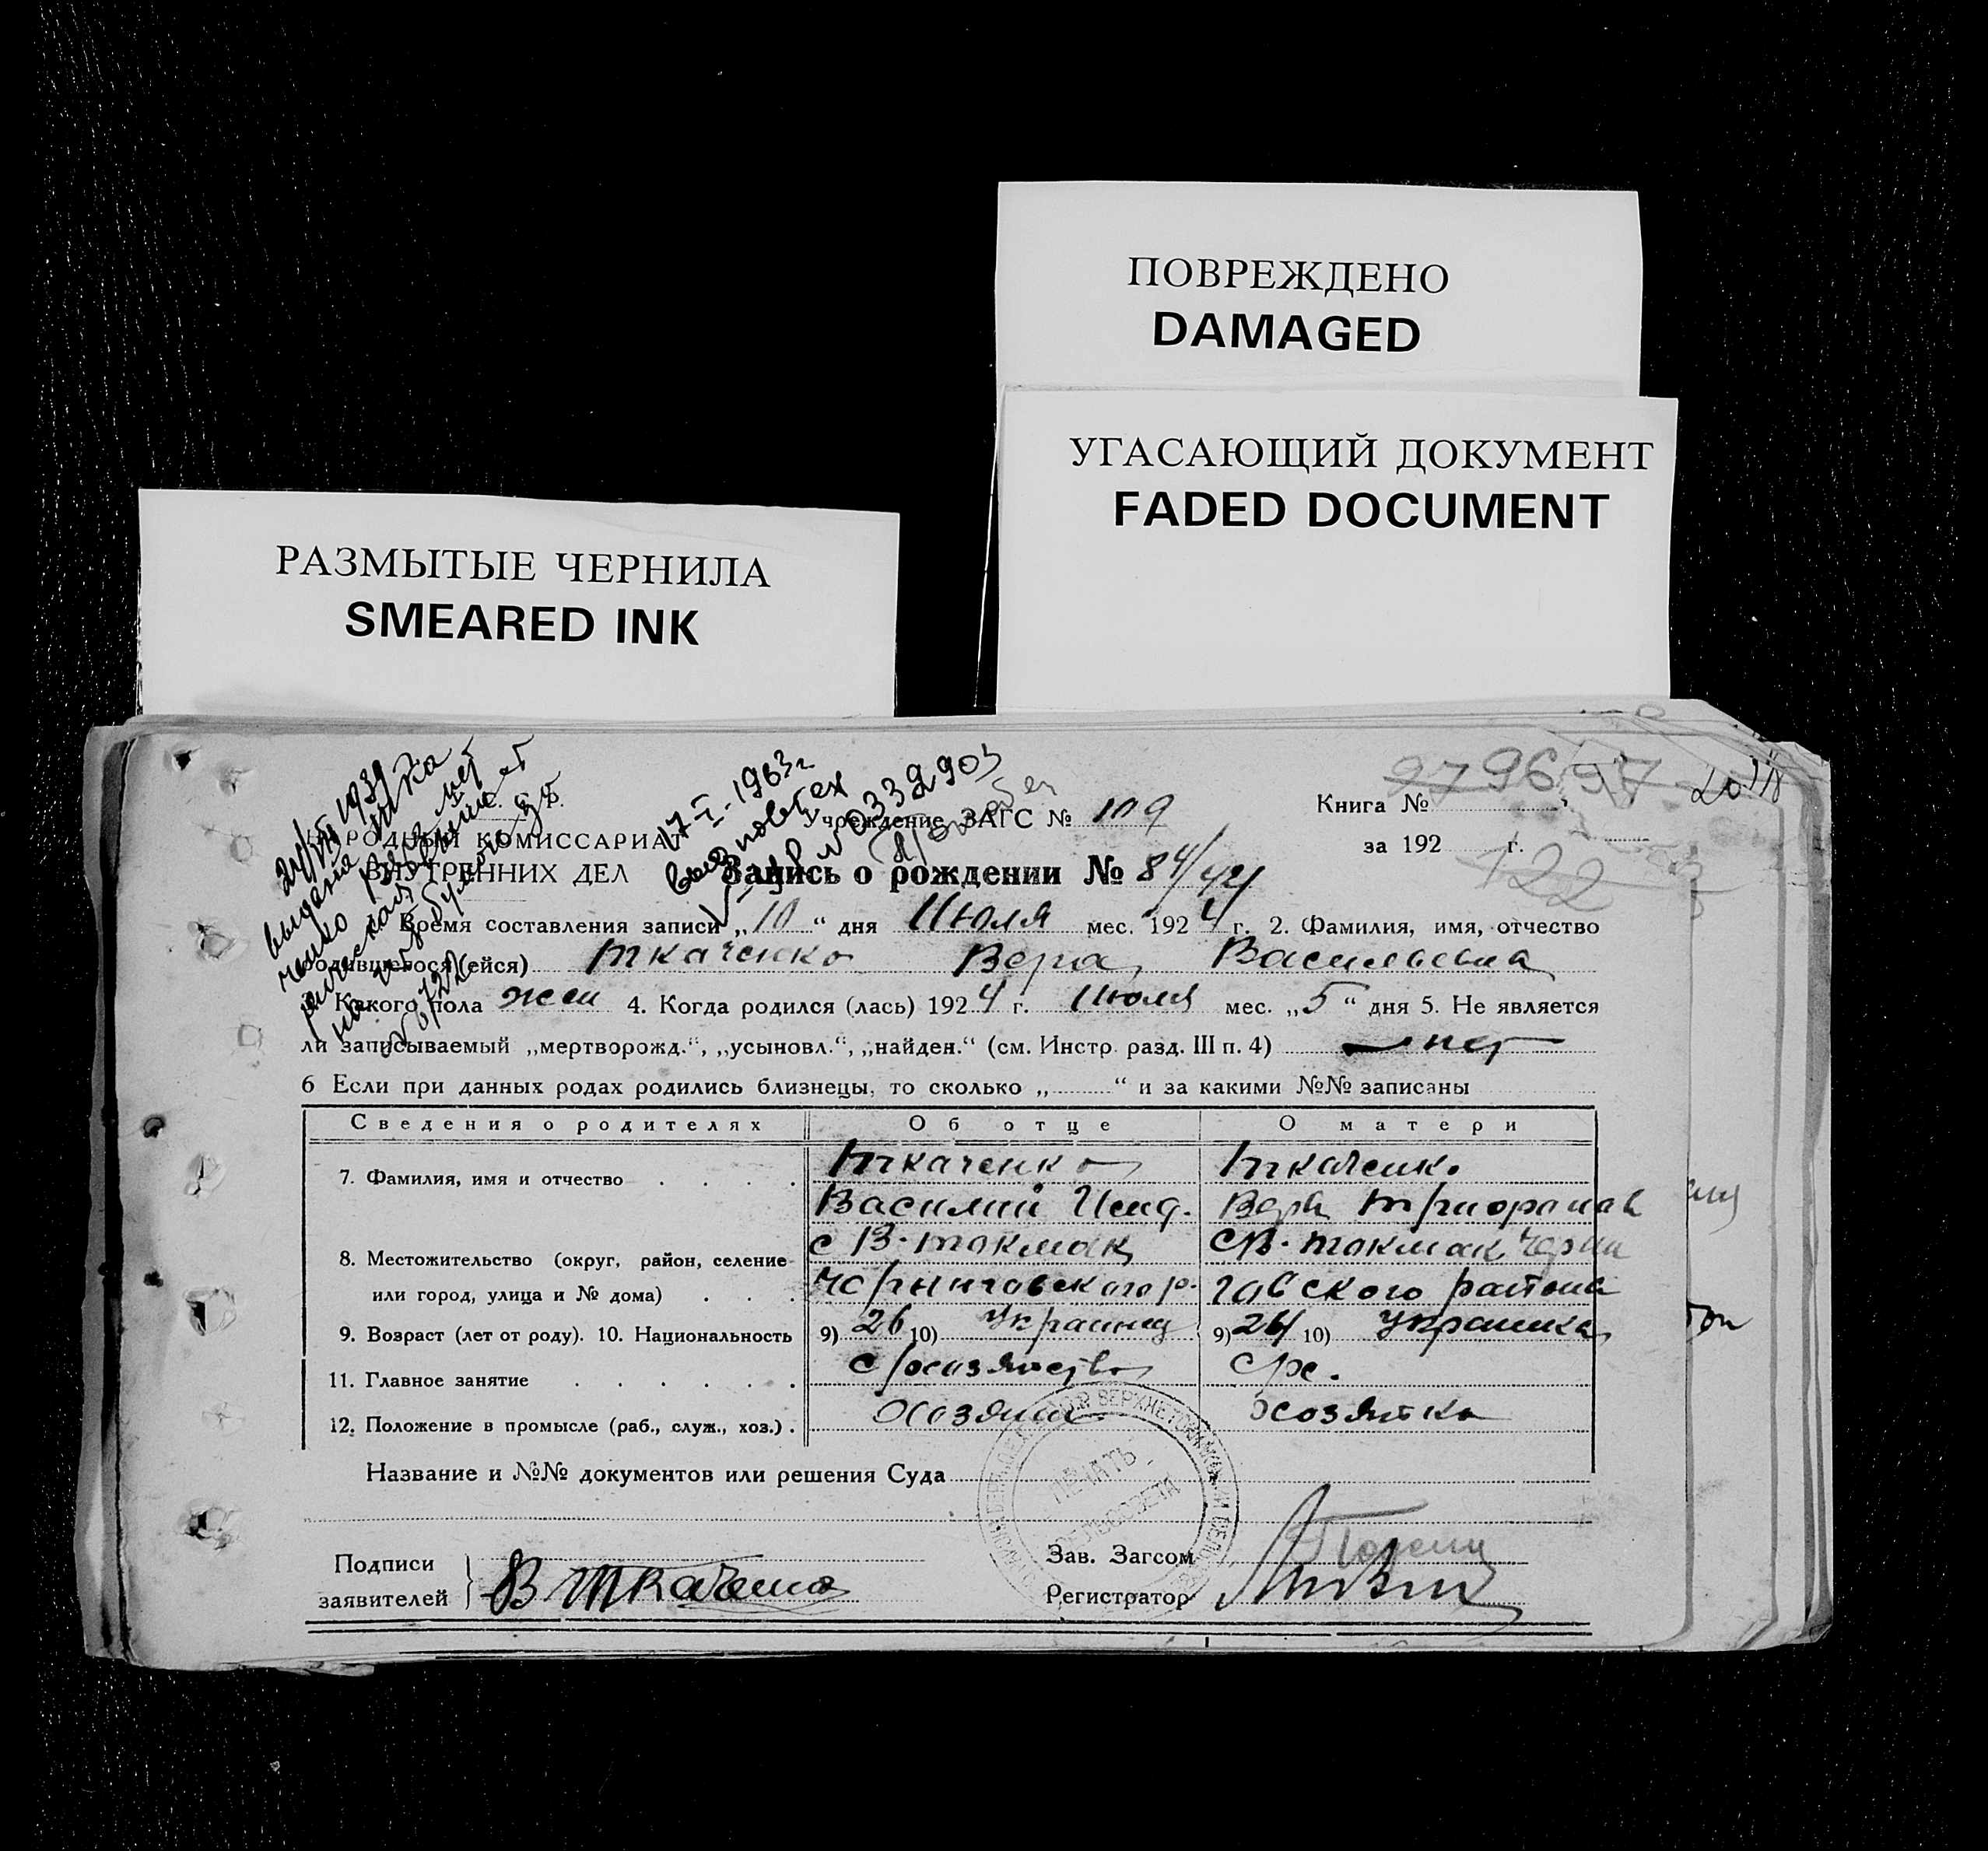 ПОВРЕЖДЕНО
DAMAGED
УГАСАЮЩИЙ ДОКУМЕНТ
FADED DOCUMENT
РАЗМЫТЫЕ ЧЕРНИЛА
SMEARED INK
17-I-1963г
выд повтор
0332903
С. Р.
НАРОДНЫЙ КОМИССАРИАТ
ВНУТРЕННИХ ДЕЛ
Учреждение ЗАГС № 109
Книга №
279697
за 192 г.
122
Запись о рождении № 84/44
Время составления записи „10“ дня Июля мес. 1924 г. 2. Фамилия, имя, отчество
родившегося (ейся) Ткаченко Вера Васильевна
3. Какого пола жен 4. Когда родился (лась) 1924 г. Июля мес. „5“ дня 5. Не является
ли записываемый „мертворожд.“, „усыновл.“, „найден.“ (см. Инстр. разд. III п. 4) нет
6 Если при данных родах родились близнецы, то сколько „ “ и за какими №№ записаны
Сведения о родителях Об отце О матери
7. Фамилия, имя и отчество Ткаченко Ткаченко
Василий Вера
8. Местожительство (округ, район, селение с В-Токмак с В-Токмак Черни
или город, улица и № дома) Чорниговского р. говского района
9. Возраст (лет от роду). 10. Национальность 9) 26 10) Украинец 9) 24 10) Украинка
11. Главное занятие с/хозяйство с/хо.
12. Положение в промысле (раб., служ., хоз.) Хозяин Хозяйка
Название и №№ документов или решения Суда
ПЕЧАТЬ
СЕЛЬСОВЕТА
Подписи
заявителей В Ткаченко
Зав. Загсом
Регистратор